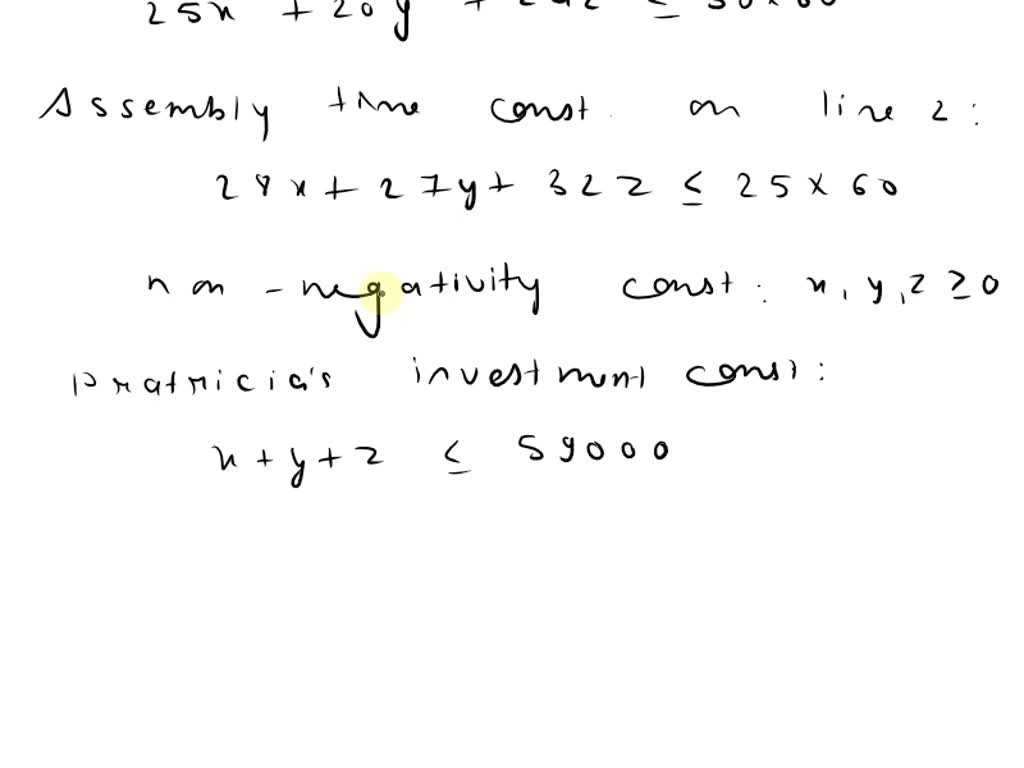 25x + 20y +
Assembly time const on line 2:
28x + 27y + 32z ≤ 25 × 60
non - negativity const: x, y, z ≥ 0
Pratricia's investment const:
x + y + z ≤ 59000